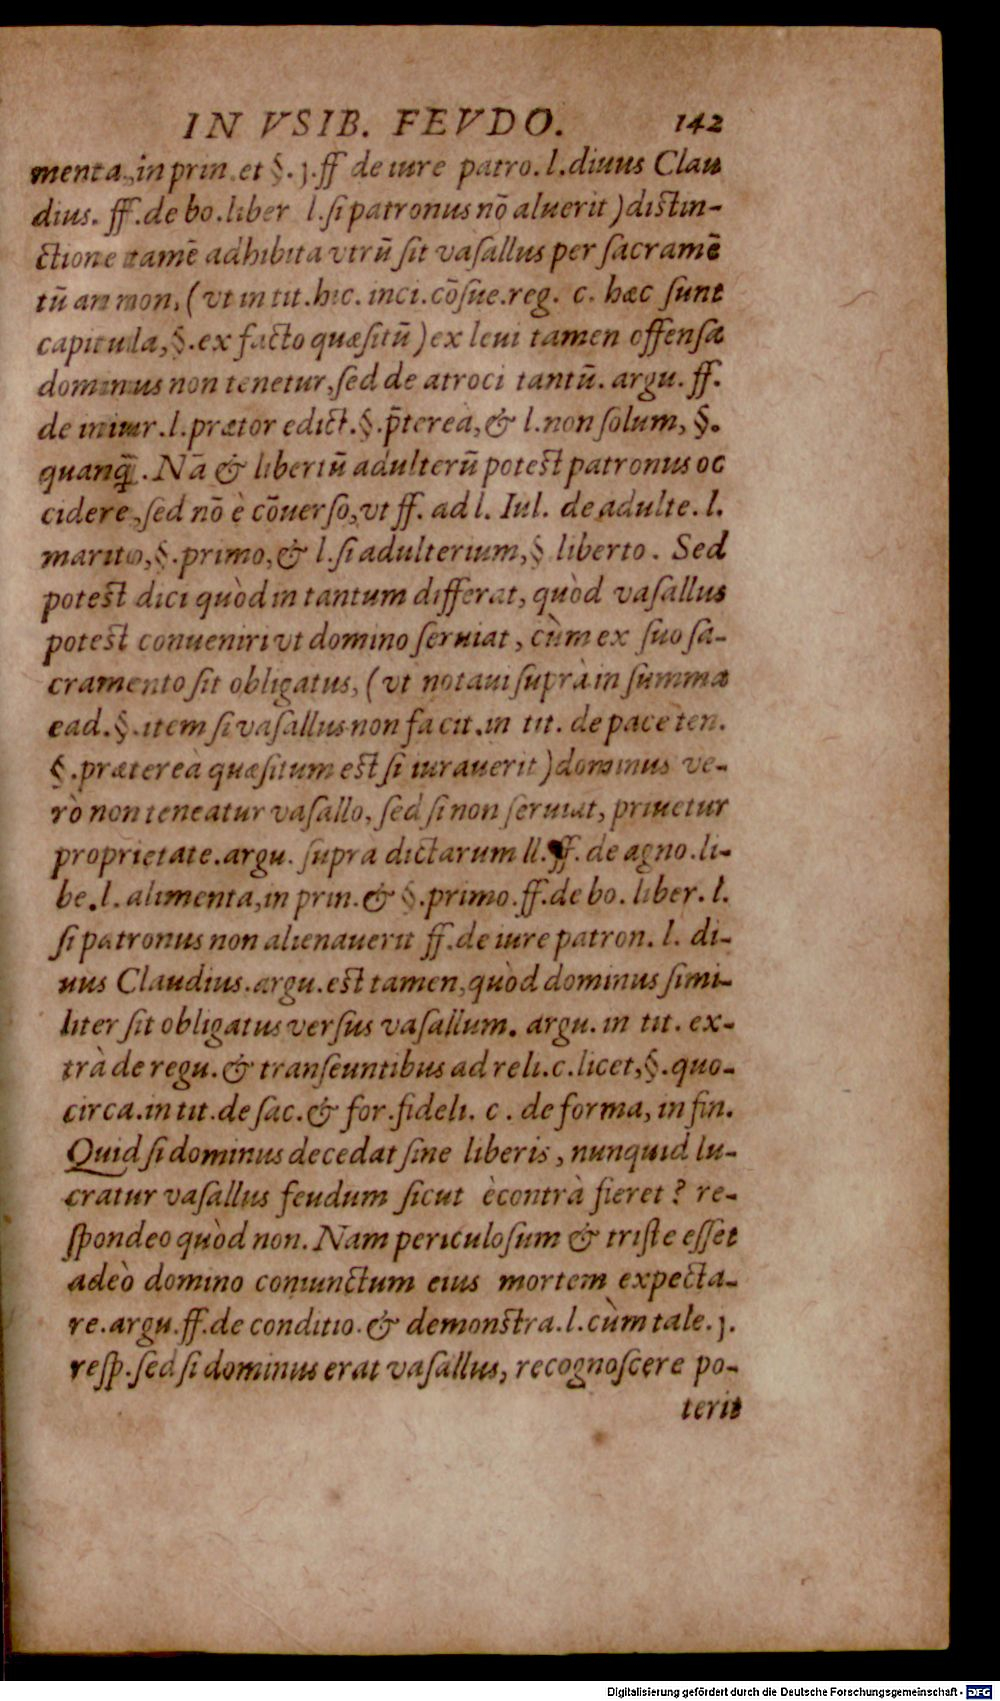 IN VSIB. FEVDO. 142
menta, in prin. et §. j. ff de iure patro. l. diuus Clau
dius. ff. de bo. liber l. ſi patronus nõ aluerit) diſtin-
ctione tamẽ adhibita vtrũ ſit vaſallus per ſacramẽ
tũ an non, (vt in tit. hic. inci. cõſue. reg. c. hæc ſunt
capitula, §. ex facto quæſitũ) ex leui tamen offenſa
dominus non tenetur, ſed de atroci tantũ. argu. ff.
de iniur. l. prætor edict. §. p̃tereà, & l. non ſolum, §.
quanq̃. Nã & libertũ adulterũ poteſt patronus oc
cidere, ſed nõ è cõuerſo, vt ff. ad l. Iul. de adulte. l.
marito, §. primo, & l. ſi adulterium, § liberto. Sed
poteſt dici quòd in tantum differat, quòd vaſallus
poteſt conueniri vt domino ſeruiat, cùm ex ſuo ſa-
cramento ſit obligatus, (vt notaui ſuprà in ſumma
ead. §. item ſi vaſallus non facit. in tit. de pace ten.
§. præterea quæſitum eſt ſi iurauerit) dominus ve-
rò non teneatur vaſallo, ſed ſi non ſeruiat, priuetur
proprietate. argu. ſuprà dictarum ll. ff. de agno. li-
be. l. alimenta, in prin. & §. primo. ff. de bo. liber. l.
ſi patronus non alienauerit ff. de iure patron. l. di-
uus Claudius. argu. eſt tamen, quòd dominus ſimi-
liter ſit obligatus verſus vaſallum. argu. in tit. ex-
trà de regu. & tranſeuntibus ad reli. c. licet, §. quo-
circa. in tit. de ſac. & for. fideli. c. de forma, in fin.
Quid ſi dominus decedat ſine liberis, nunquid lu-
cratur vaſallus feudum ſicut ècontrà fieret? re-
ſpondeo quòd non. Nam periculoſum & triſte eſſet
adeò domino coniunctum eius mortem expecta-
re. argu. ff. de conditio. & demonſtra. l. cùm tale. j.
reſp. ſed ſi dominus erat vaſallus, recognoſcere po-
terit
Digitalisierung gefördert durch die Deutsche Forschungsgemeinschaft - DFG